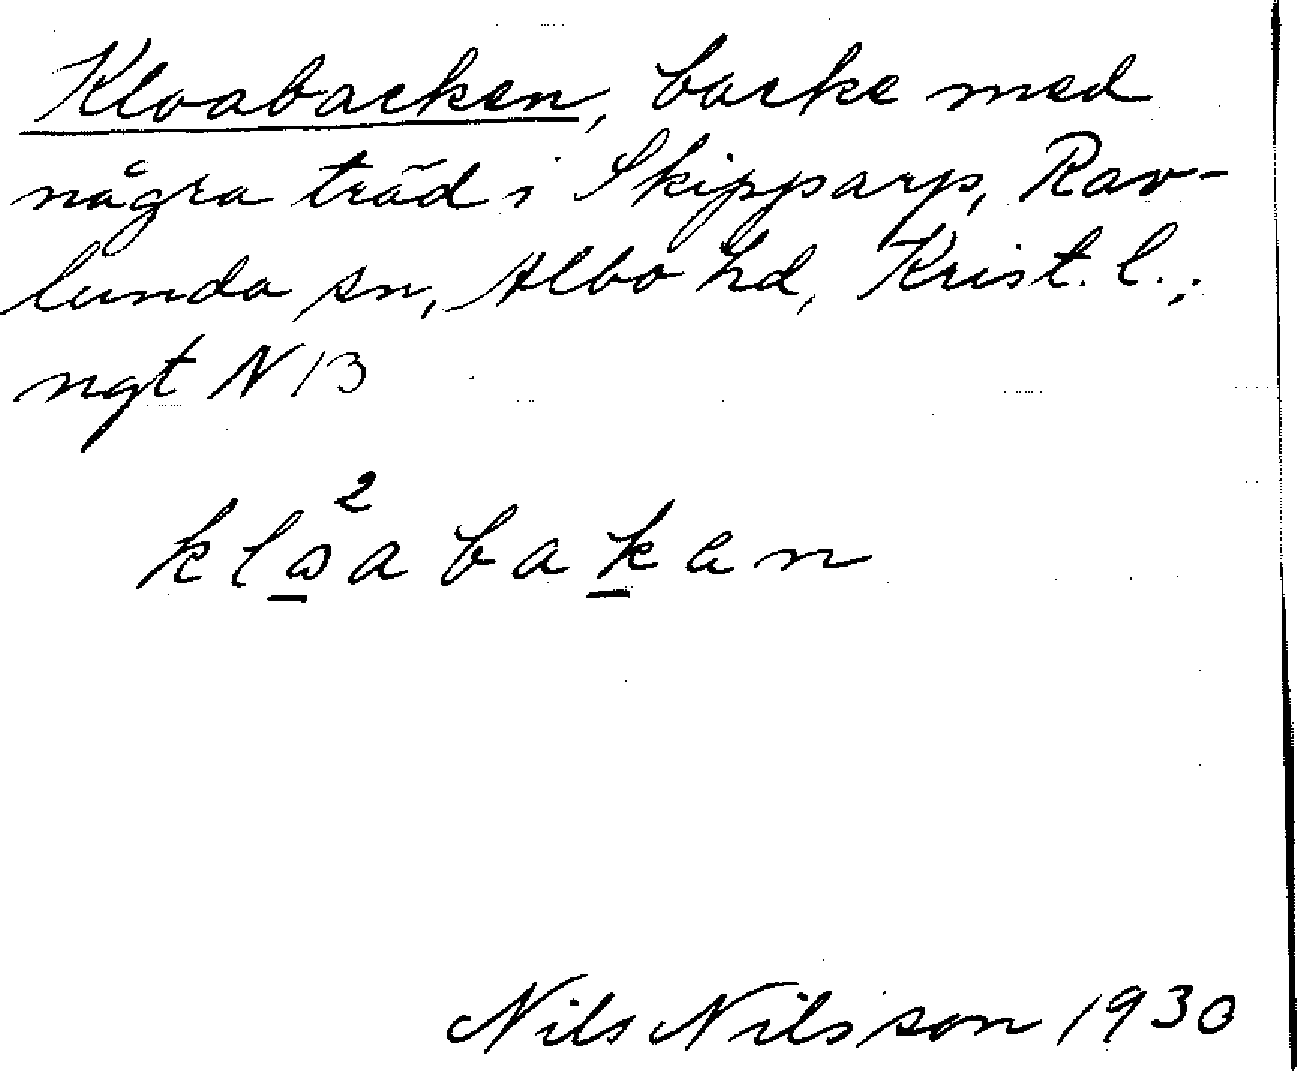 Kloabacken, backe med
några träd i Skipparp, Rav-
lunda sn, Albo hd, Krist. l.;
ngt N 13
bakan
Nils Nilsson 1930